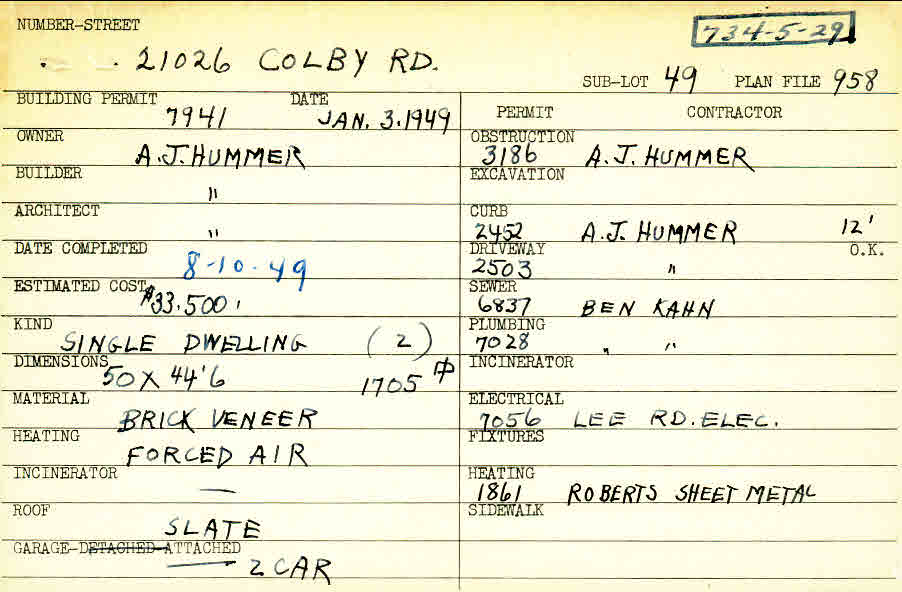 NUMBER-STREET
734-5-29
21026 COLBY RD.
SUB-LOT 49 PLAN FILE 958
BUILDING PERMIT DATE
7941 JAN. 3. 1949
PERMIT CONTRACTOR
OWNER
A.J. HUMMER
OBSTRUCTION
3186 A.J. HUMMER
BUILDER
"
EXCAVATION
ARCHITECT
"
CURB
2452 A.J. HUMMER 12'
DATE COMPLETED
8-10-49
DRIVEWAY O.K.
2503 "
ESTIMATED COST
$33,500.
SEWER
6837 BEN KAHN
KIND
SINGLE DWELLING (2)
PLUMBING
7028 " "
DIMENSIONS
50 X 44'6 1705
INCINERATOR
MATERIAL
BRICK VENEER
ELECTRICAL
7056 LEE RD. ELEC.
HEATING
FORCED AIR
FIXTURES
INCINERATOR
—
HEATING
1861 ROBERTS SHEET METAL
ROOF
SLATE
SIDEWALK
GARAGE-DETACHED-ATTACHED
2 CAR